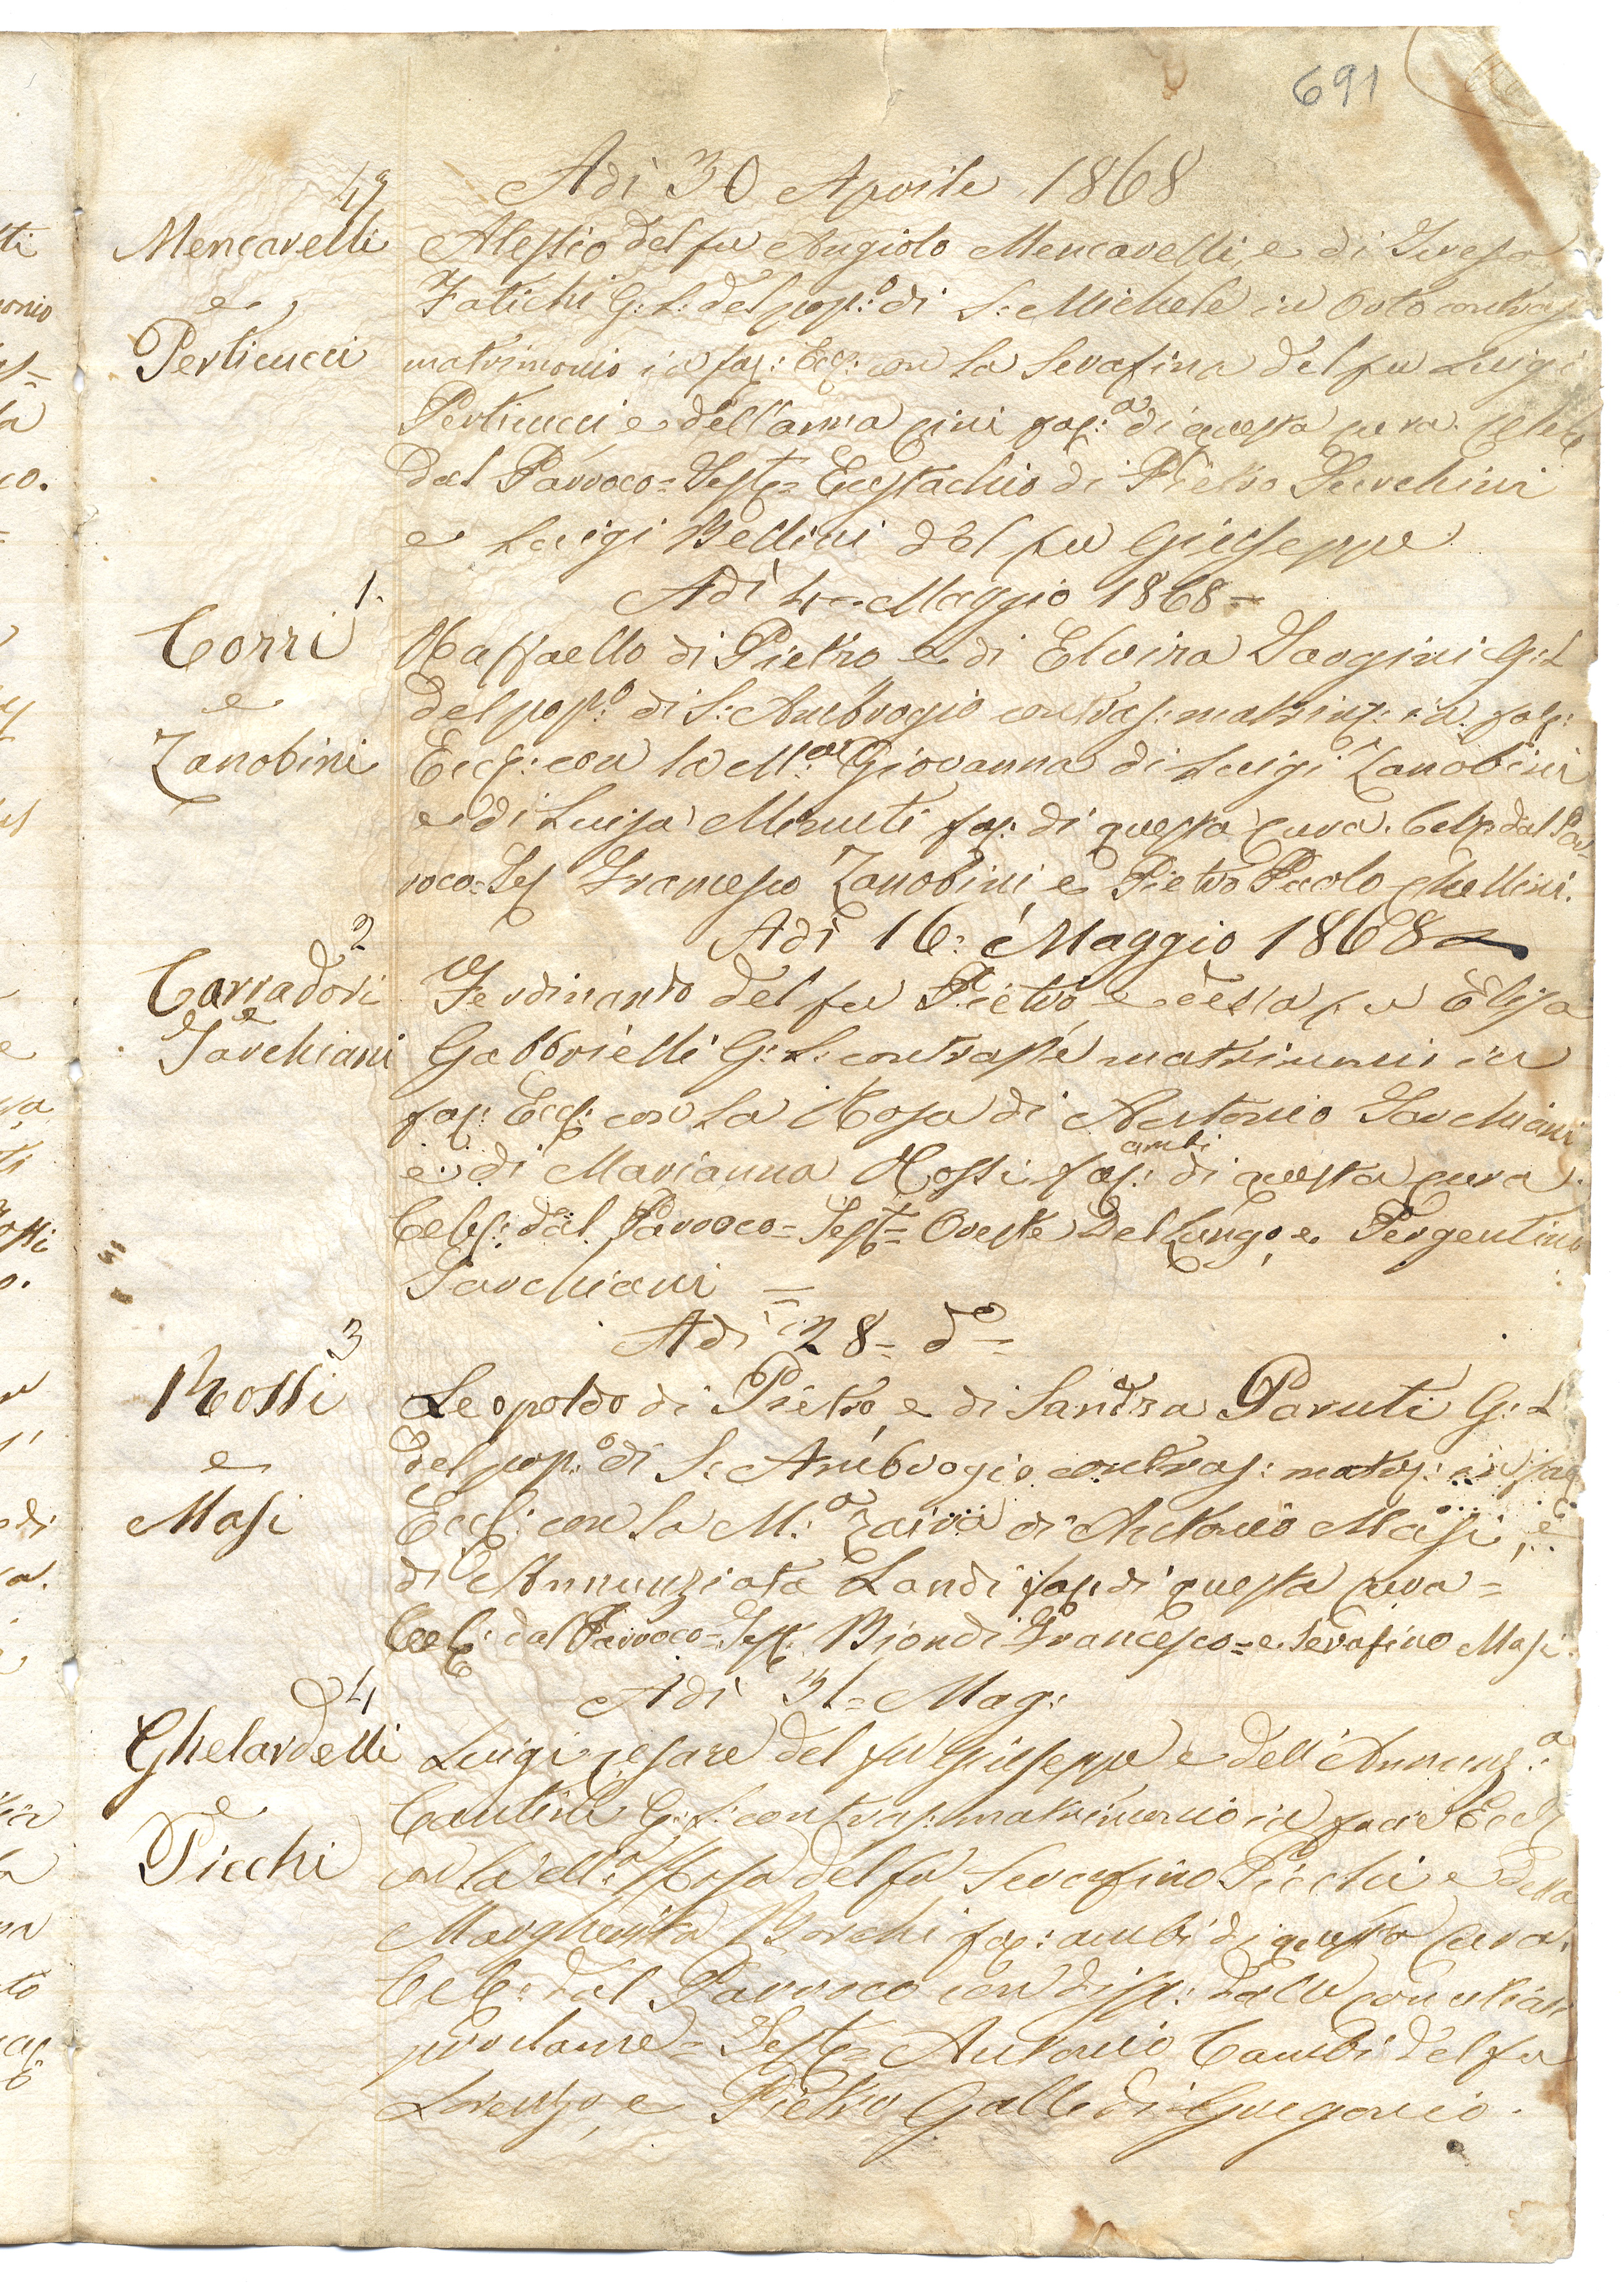 691
Adì 30 Aprile 1868
47
Mencarelli
e
Perticucci
Alessio del fu Angiolo Mencarelli, e di Teresa
Fatichi G: L: del pop:o di S: Michele in Orto contras
matrimonio in fac: Eccl: con la Serafina del fu Luigi
Perticucci e dell'anna cini fac:a di questa cura. Celeb
dal Parroco = Test = Eustachio di Pietro
e Luigi Bellini del fu Giuseppe
Adì 4 = Maggio 1868 =
1.
Corri
e
Zanobini
Raffaello di Pietro e di Elvira G: L
del pop:o di S: Ambrogio contras: matrim: in fac:
Eccl: con la M:a Giovanna di Luigi Zanobini
e di Luisa Minuti fac: di questa cura. Celb dal Par
roco = Tes Francesco Zanobini, e Pietro Paolo Mellini.
Adì 16: Maggio 1868
2
Carradori
e
Tarchiani
Ferdinando del fu Pietro e della fu Elisa
Gabbrielli G: L: contrasse matrimoni in
fac: Eccl: con la Rosa di Antonio Tarchiani
e di Marianna Rossi fac: ambi di questa cura
Celeb: dal Parroco = Test = Oreste Del Lungo, e Pergentino
Tarchiani =
Adì 28 = do =
3
Rossi
e
Masi
Leopoldo di Pietro, e di Sandra Paruti G: L
del pop:o di S: Ambrogio contras: matr: in fac
Eccl: con la M:a Zaira di Antonio Masi, e
di Annunziata Landi fac: di questa cura =
Celeb: dal Parroco = Test: Biondi Francesco = e Serafino Masi.
Adì 31 = Mag:
4
Ghelardelli
e
Picchi
Luigi Cesare del fu Giuseppe e dell'Annunz:a
Cantini G: L: contras: matrimonio in facie Eccl
con la M:a Rosa del fu Serafino Picchi e della
Margherita Borchi fac: ambi di questa cura.
Celeb: dal Parroco con disp: dalle
proclame = Test = Antonio Cambi del fu
Lorenzo, e Pietro Galli di Gregorio.